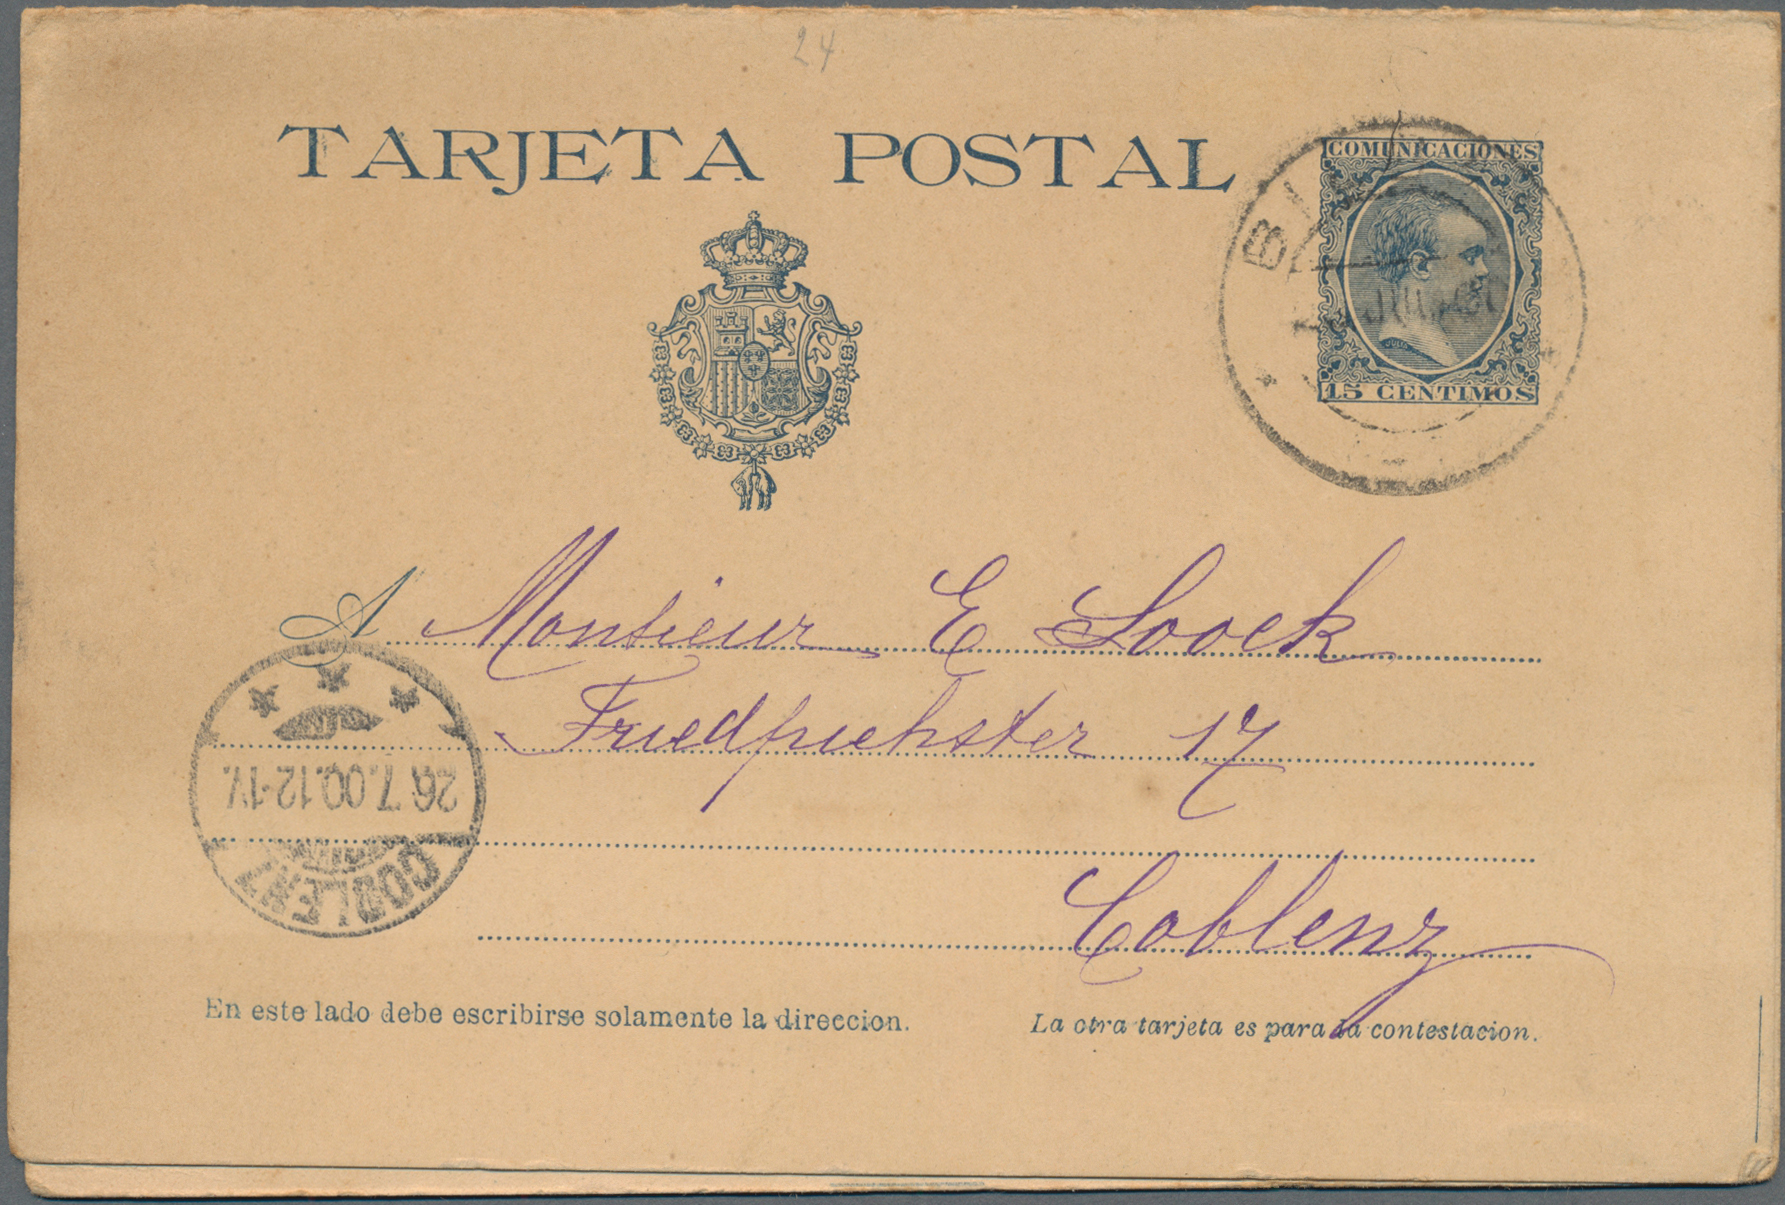 24
TARJETA POSTAL
COMUNICACIONES
15 CENTIMOS
A Monsieur E Loock
Friedrichster 17
Coblenz
26.7.00.12-1V.
COBLENZ
En este lado debe escribirse solamente la direccion.
La otra tarjeta es para la contestacion.